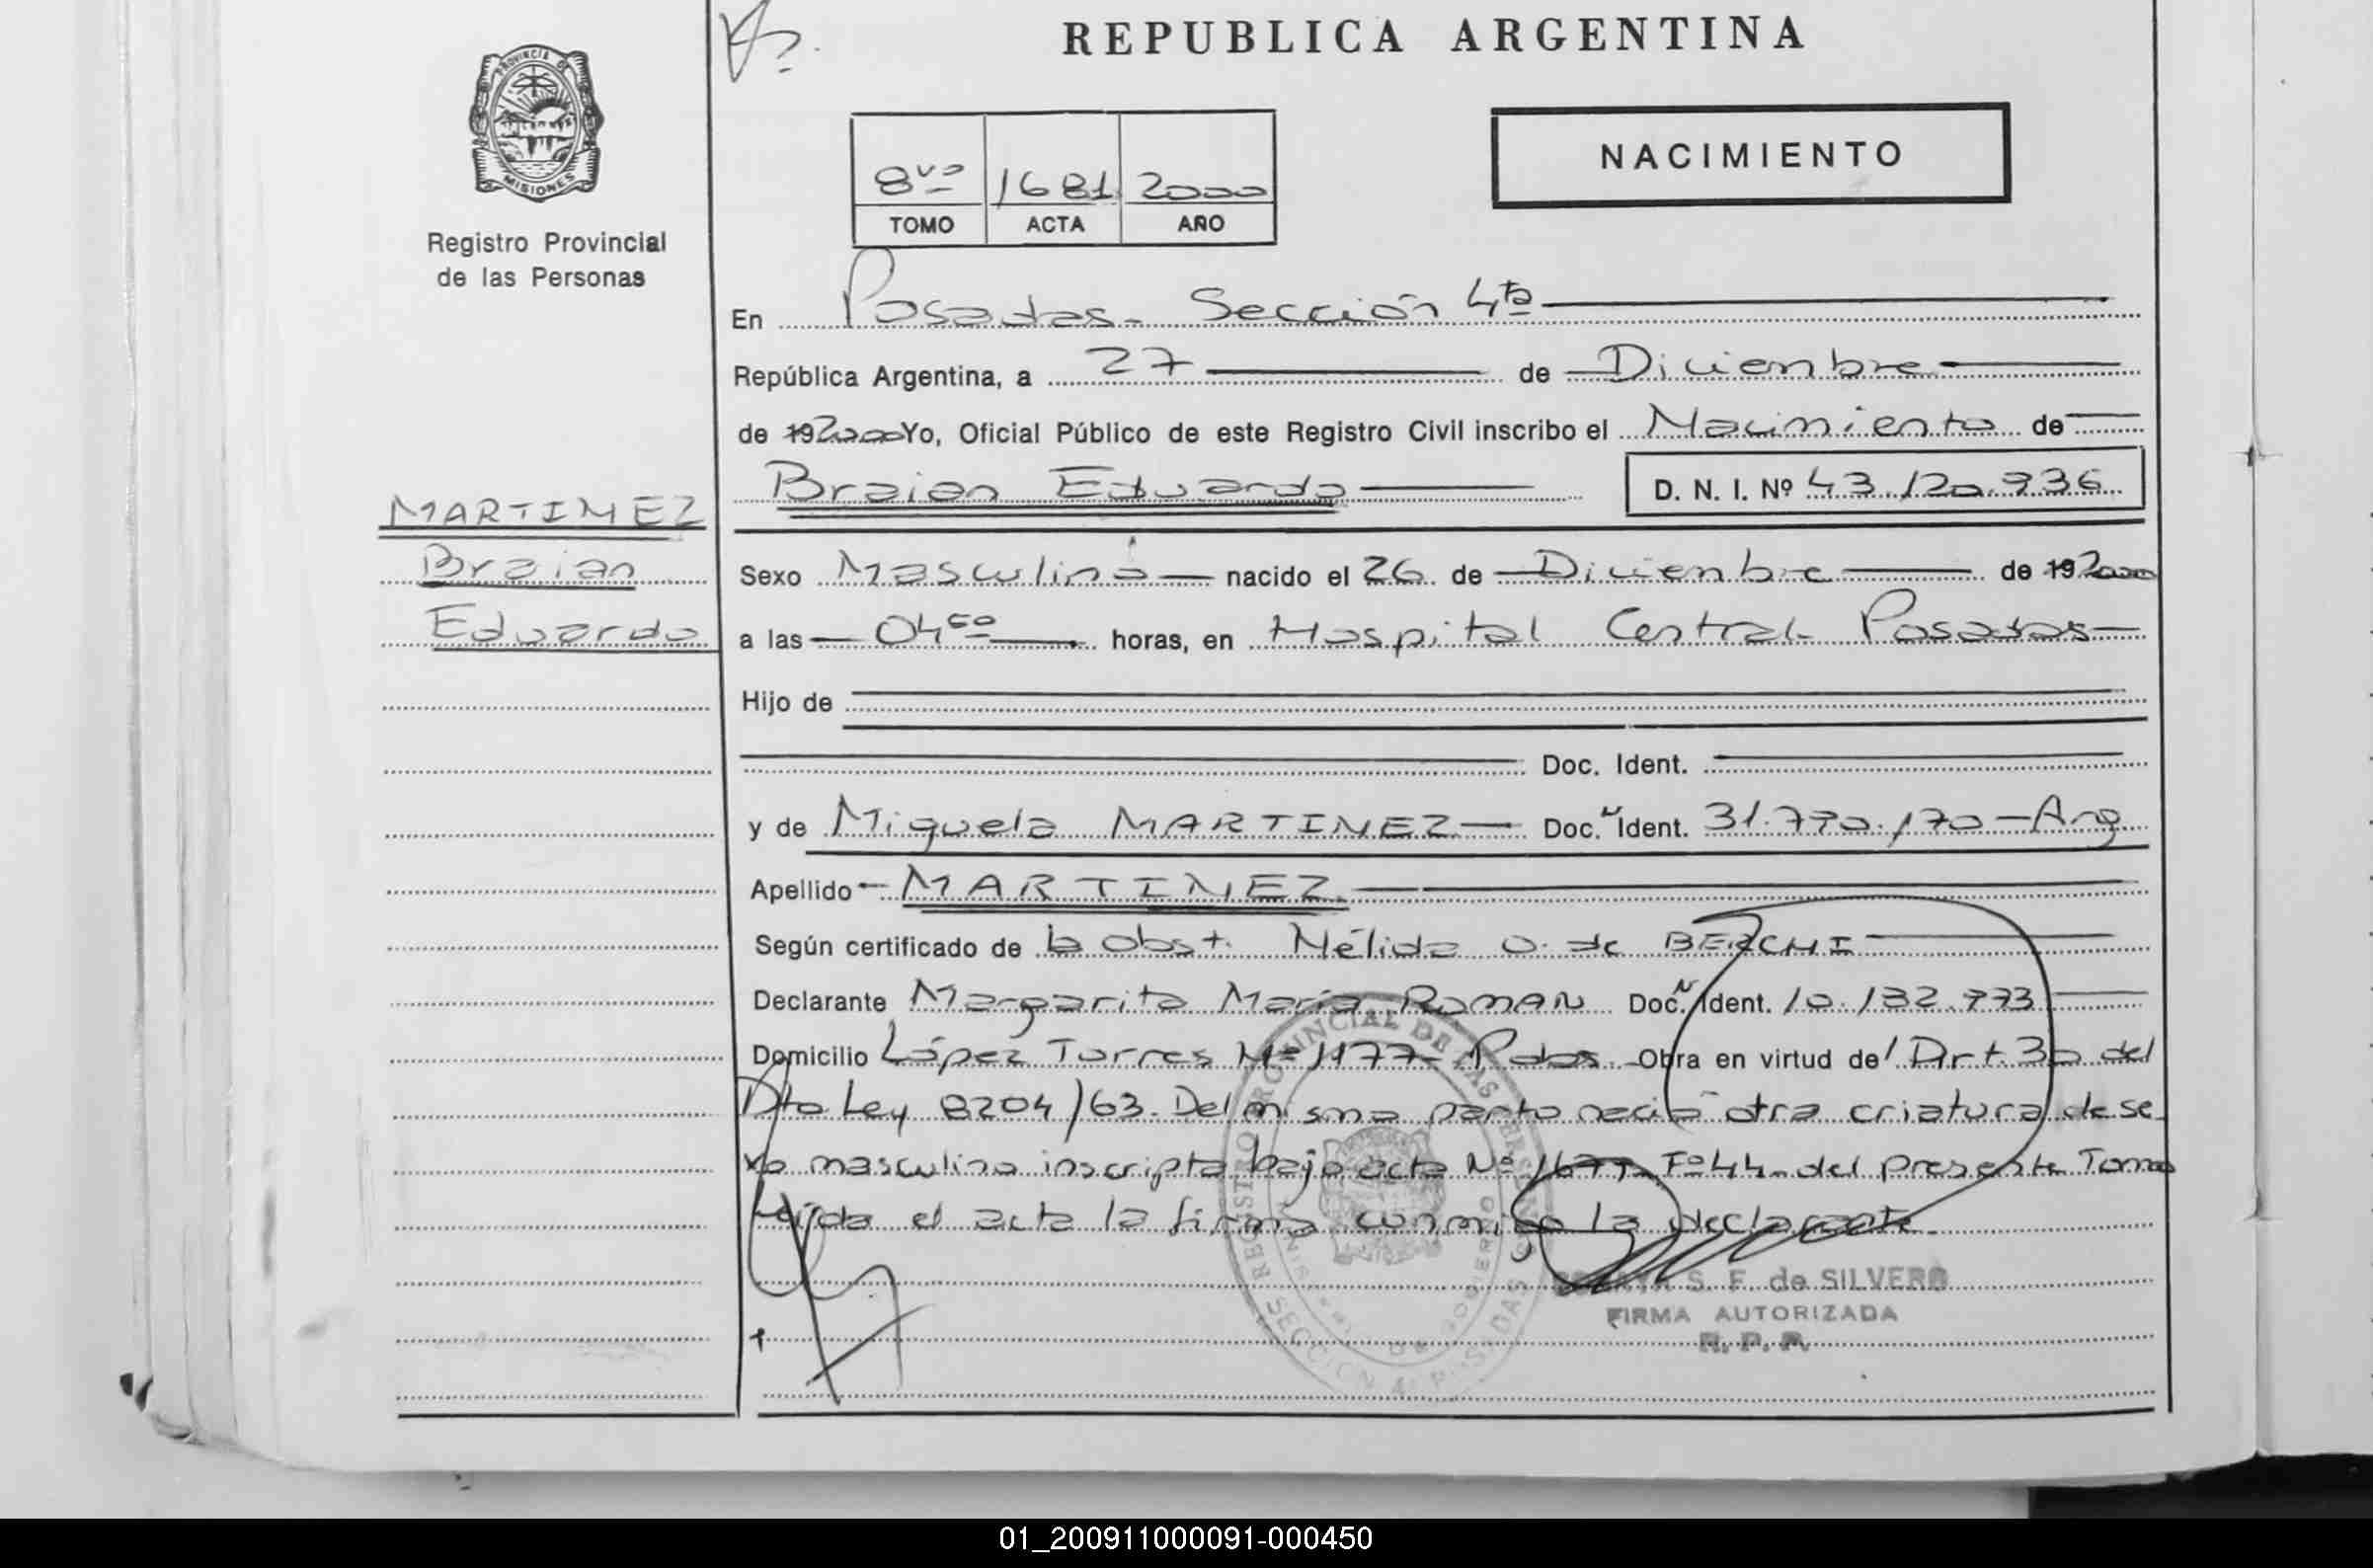 REPUBLICA ARGENTINA
PROVINCIA DE
MISIONES
Registro Provincial
de las Personas
NACIMIENTO
8vo 1681 2000
TOMO ACTA AÑO
En Posadas - Sección 4ta
República Argentina, a 27 de Diciembre
de 192000 Yo, Oficial Público de este Registro Civil inscribo el Nacimiento de
Braian Eduardo D. N. I. Nº 43.120.936
MARTINEZ
Braian
Eduardo
Sexo Masculino nacido el 26 de Diciembre de 192000
a las 04 horas, en Hospital Central Posadas
Hijo de
Doc. Ident.
y de Miguela MARTINEZ Doc. Ident. 31.790.170 - Arg
Apellido MARTINEZ
Según certificado de la obst. Nélida O. de BERCHI
Declarante Margarita María ROMAN Doc. Ident. 10.132.773
Domicilio López Torres Nº 1177 - Pdas. Obra en virtud del Art. 30 del
Dto Ley 8204/63. Del mismo parto nació otra criatura de se-
xo masculino inscripta bajo acta Nº 1677 - Fº 44 - del presente Tomo
Leída el acta la firma conmigo la declarante.
REGISTRO PROVINCIAL DE LAS PERSONAS
S. F. de SILVERO
FIRMA AUTORIZADA
R. P. P.
01_200911000091-000450